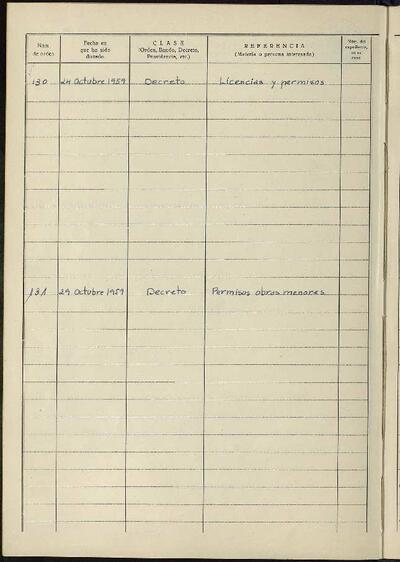 Núm. de orden
Fecha en que ha sido dictado
CLASE
(Orden, Bando, Decreto, Providencia, etc.)
REFERENCIA
(Materia o persona interesada)
Núm. del expediente,
130 24 Octubre 1959 Decreto Licencias y permisos
131 29 Octubre 1959 Decreto Permisos obras menores